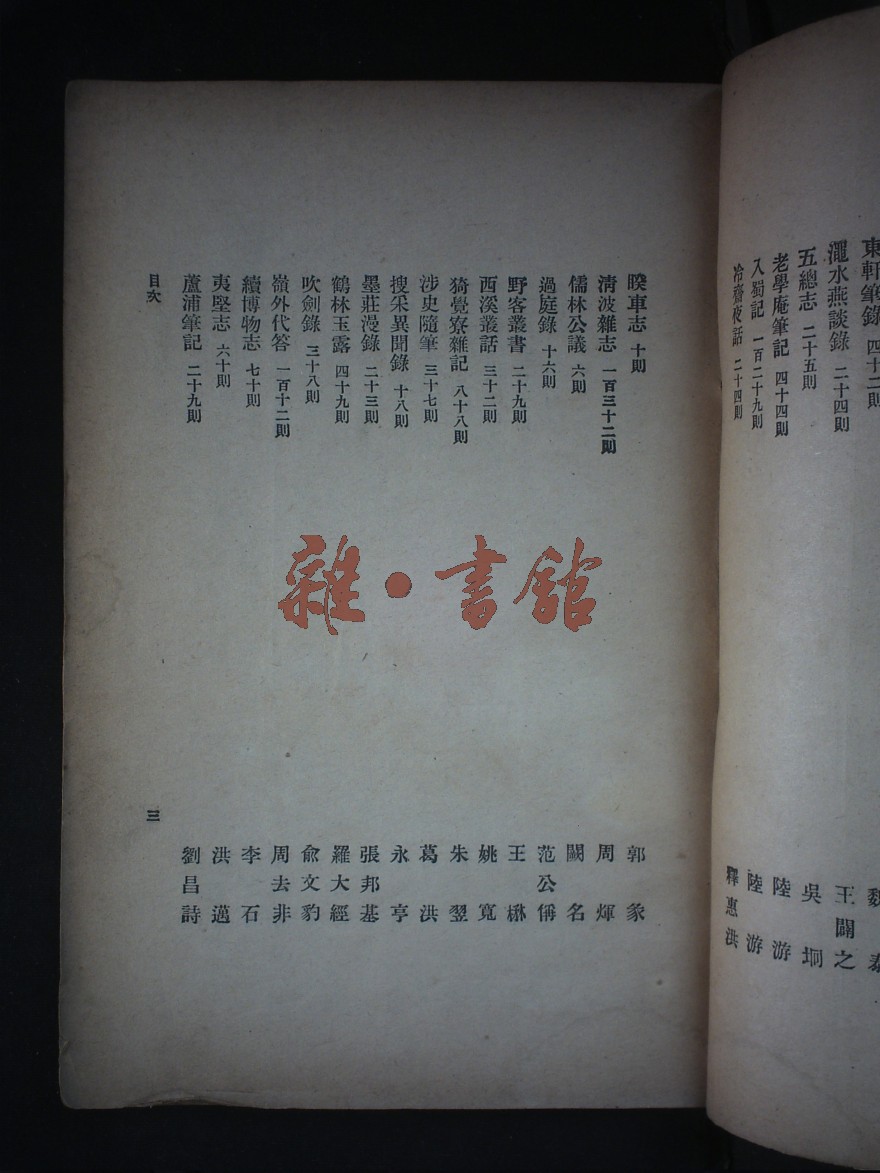 東軒筆錄 四十二則 魏泰
澠水燕談錄 二十四則 王闢之
五總志 二十五則 吳坰
老學庵筆記 四十四則 陸游
入蜀記 一百二十九則 陸游
冷齋夜話 二十四則 釋惠洪
睽車志 十則 郭彖
淸波雜志 一百三十二則 周煇
儒林公議 六則 闕名
過庭錄 十六則 范公偁
野客叢書 二十九則 王楙
西溪叢話 三十二則 姚寬
猗覺寮雜記 八十八則 朱翌
涉史隨筆 三十七則 葛洪
搜采異聞錄 十八則 永亨
墨莊漫錄 二十三則 張邦基
鶴林玉露 四十九則 羅大經
吹劍錄 三十八則 俞文豹
嶺外代答 一百十二則 周去非
續博物志 七十則 李石
夷堅志 六十則 洪邁
蘆浦筆記 二十九則 劉昌詩
目次 三
雜·書館